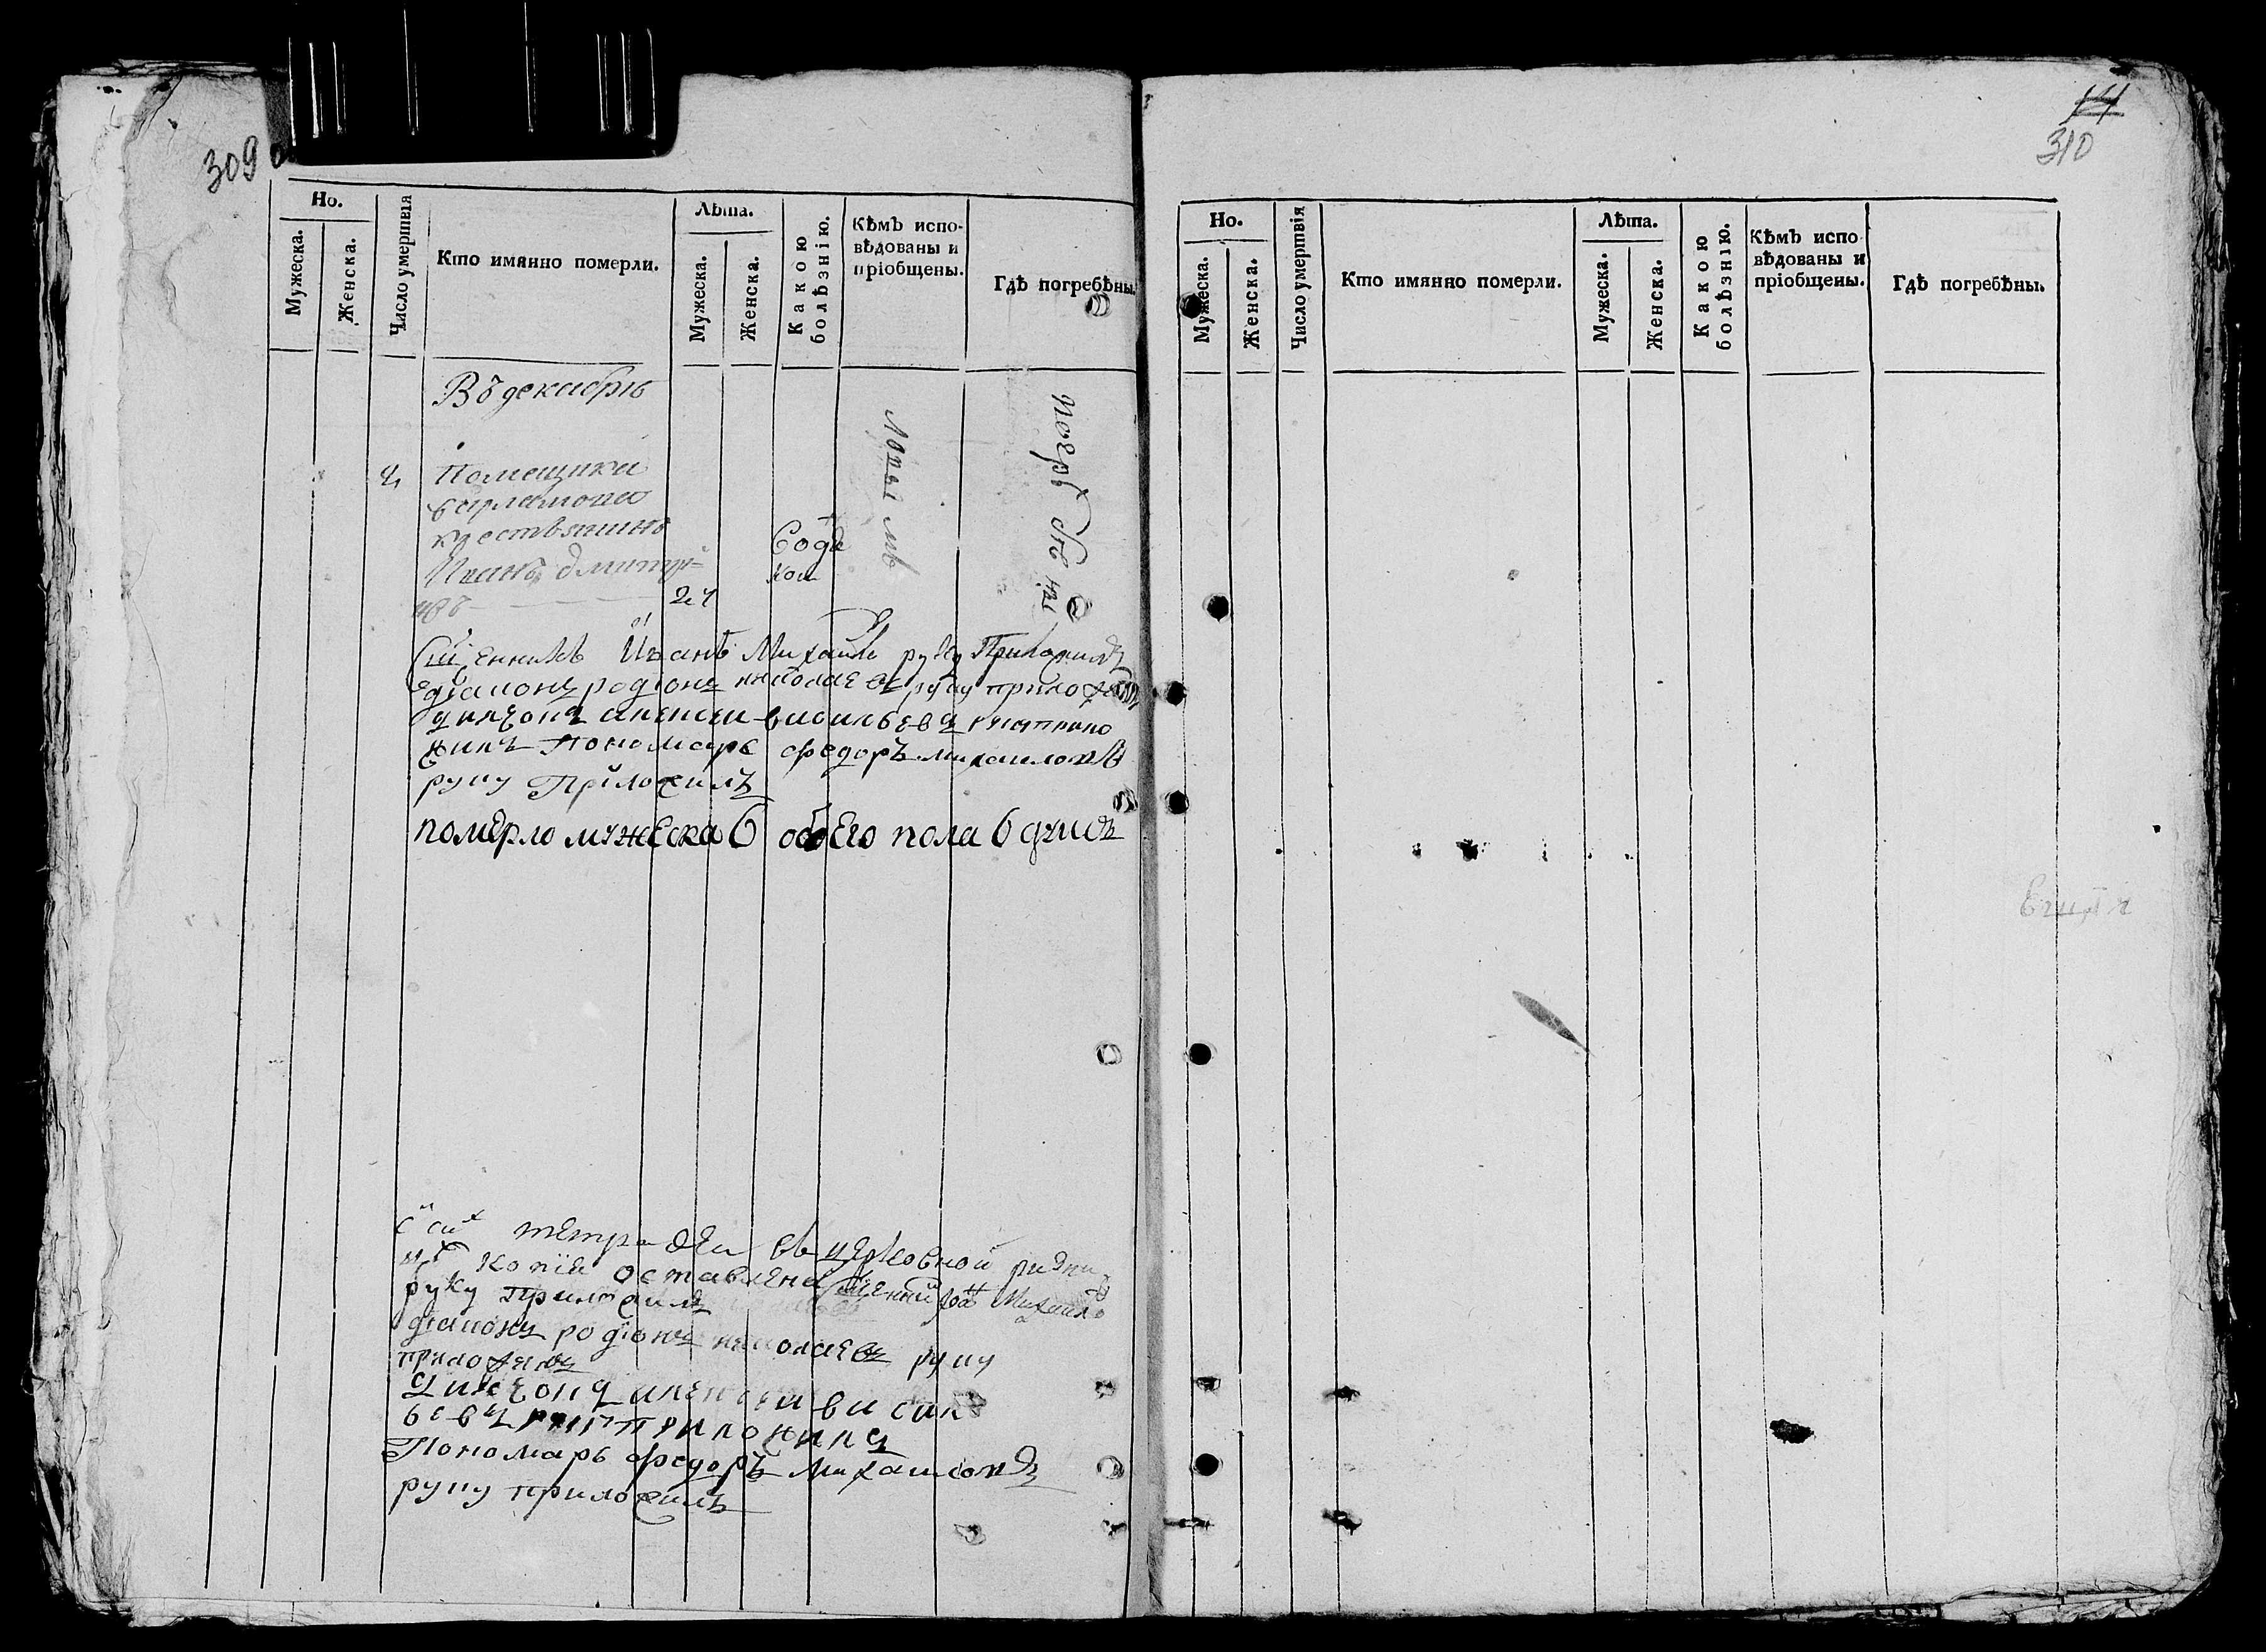 309 о
Но.
Мужеска.
Женска.
Число умертвія
Кто имянно померли.
Лѣта.
Мужеска.
Женска.
Какою болѣзнію.
Кѣмъ испо-
вѣдованы и
пріобщены.
Гдѣ погребѣны.
Въ декабрѣ
Помещика
варламова
крестьянинъ
Иванъ Дмитрі=
евъ
24
Водя
ною
Сщенникъ Иванъ Михайло руку Приложилъ
діаконъ родіонъ николаевъ руку приложилъ
дьячокъ алексеи васильевъ руку прило
жилъ Пономарь федоръ михаиловъ
руку Приложилъ
померло мужеска 6 обоего пола 6 душъ
С сих тетрадеи въ церковной ризни
цѣ копіи оставлена Сщенникъ Иоан Михаило
руку приложилъ
діаконъ родіонъ николаевъ руку
приложилъ
дьячокъ алексеи васил
ьевъ руку приложилъ
Пономарь федоръ Михаиловъ
руку приложилъ
141
310
Но.
Мужеска.
Женска.
Число умертвія
Кто имянно померли.
Лѣта.
Мужеска.
Женска.
Какою болѣзнію.
Кѣмъ испо
вѣдованы и
пріобщены.
Гдѣ погребѣны.